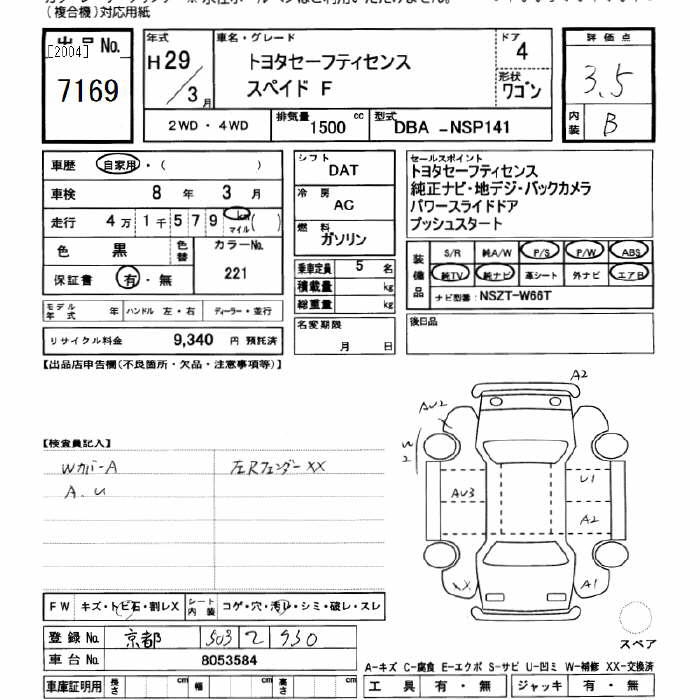 (複合機)対応用紙
出品 No.
[2004]
7169
年式
H 29 / 3 月
車名・グレード
トヨタセーフティセンス
スペイド F
ドア
4
形状
ワゴン
2WD・4WD
排気量
1500 cc
型式
DBA -NSP141
評価点
3.5
内装
B
車歴 自家用・( )
車検 8 年 3 月
走行 4 万 1 千 5 7 9 km マイル ( )
色 黒 色替 カラーNo.
221
保証書 有・無
モデル年式 年 ハンドル 左・右 ディーラー・並行
リサイクル料金 9,340 円 預託済
シフト
DAT
冷房
AC
燃料
ガソリン
乗車定員 5 名
積載量 kg
総重量 kg
名変期限
月 日
セールスポイント
トヨタセーフティセンス
純正ナビ・地デジ・バックカメラ
パワースライドドア
プッシュスタート
装備品
S/R 純A/W P/S P/W ABS
純TV 純ナビ 革シート 外ナビ エアB
ナビ型番: NSZT-W66T
後日品
【出品店申告欄(不良箇所・欠品・注意事項等)】
【検査員記入】
Wカバ-A
A.U
左Rフェンダー XX
A2
AU2
X
W2
AU3
U1
A2
XX
A1
スペア
FW キズ・トビ石・割レX シート内装 コゲ・穴・汚レ・シミ・破レ・スレ
登録No. 京都 503 930
車台No. 8053584
車庫証明用 長さ cm 幅 cm 高さ cm
A-キズ C-腐食 E-エクボ S-サビ U-凹ミ W-補修 XX-交換済
工具 有・無 ジャッキ 有・無